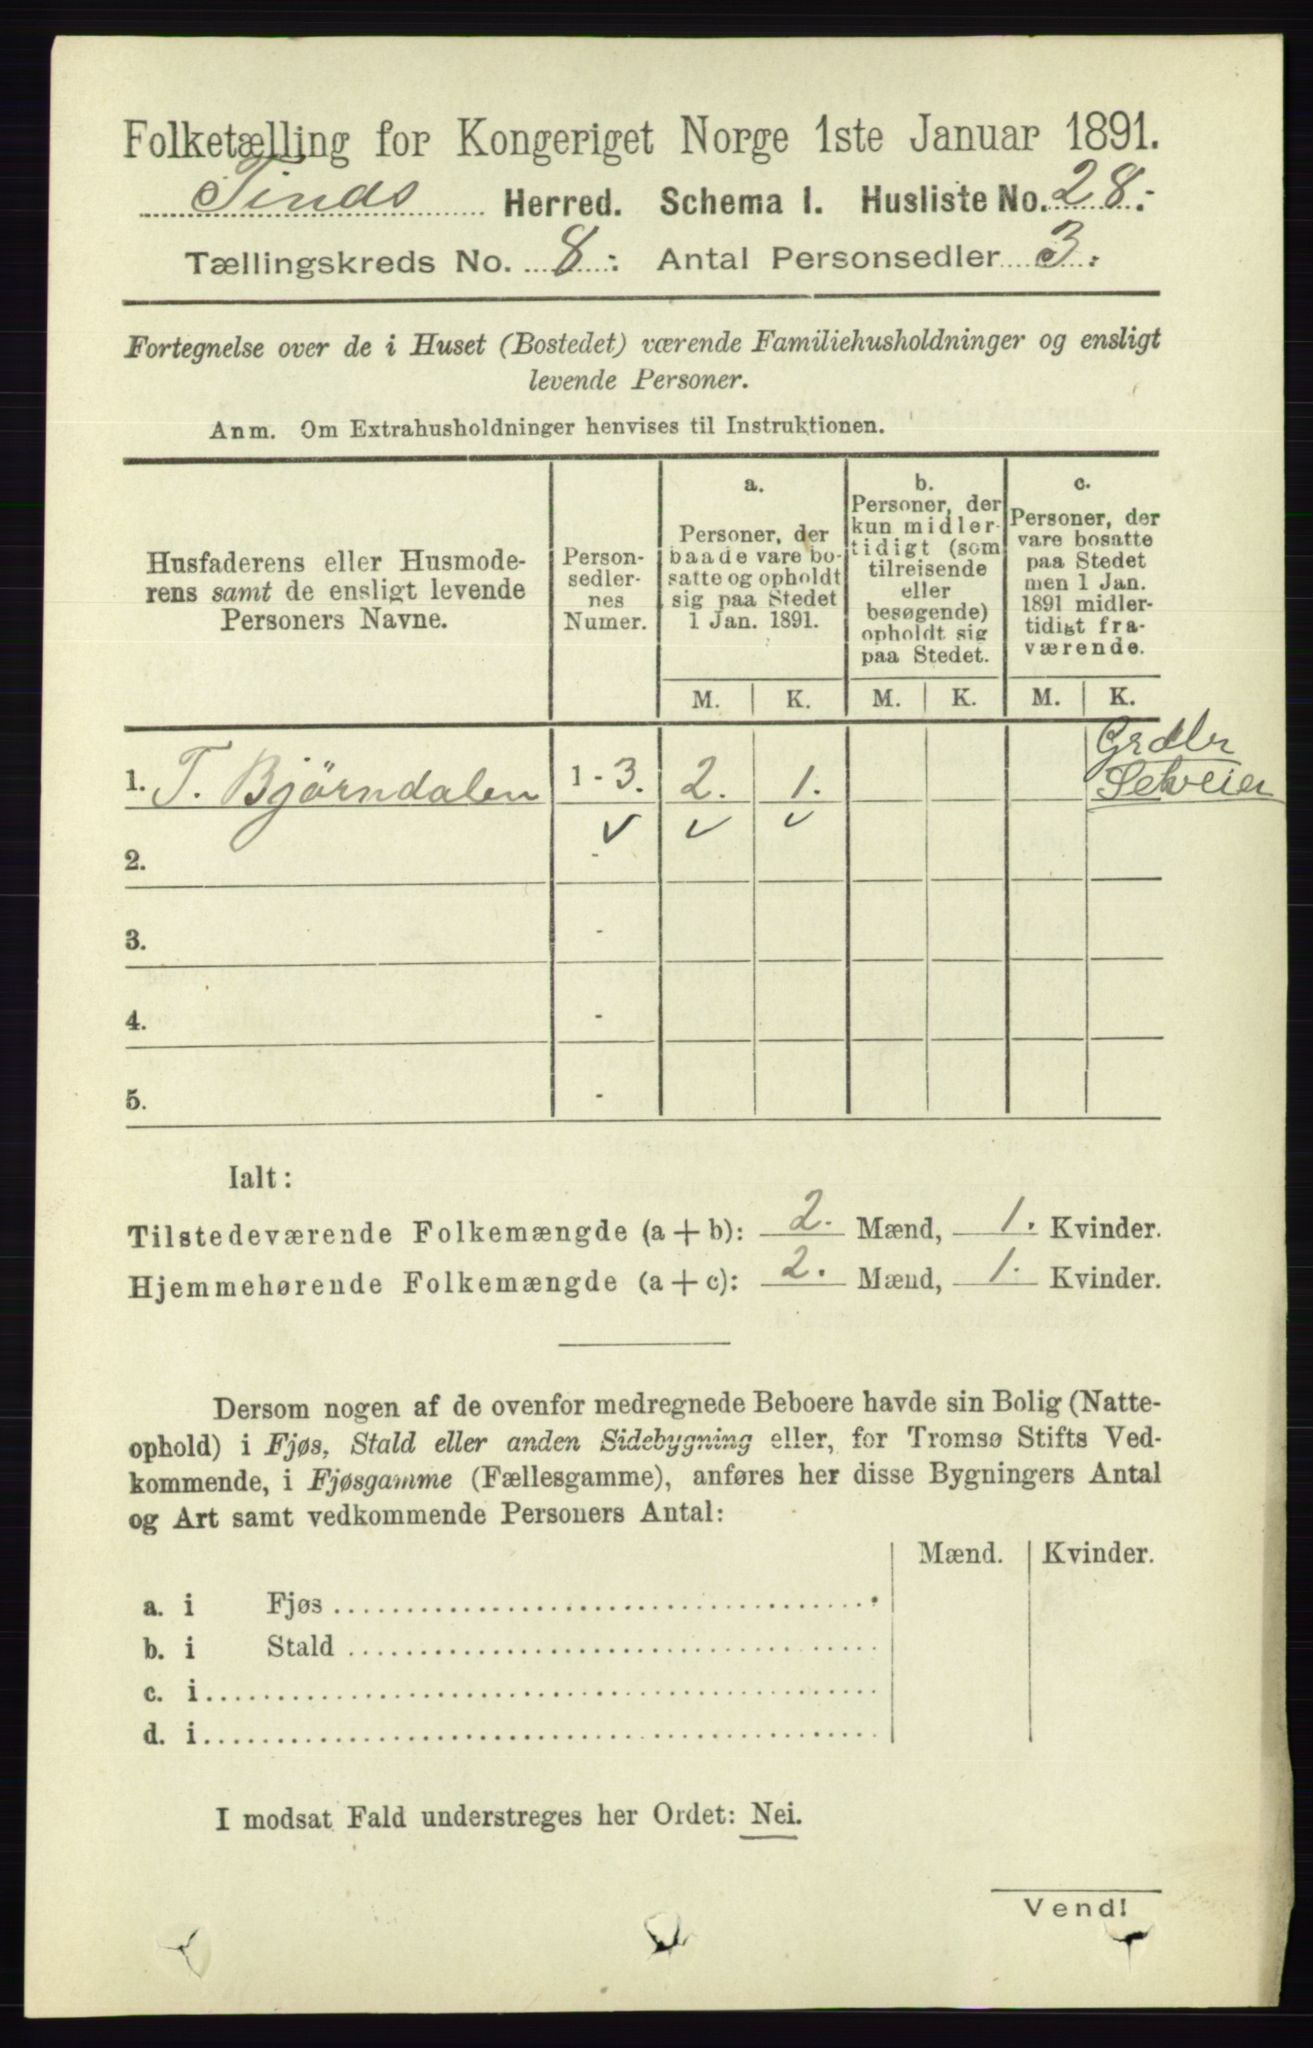 Folketælling for Kongeriget Norge 1ste Januar 1891.
Tinds Herred. Schema I. Husliste No. 28.
Tællingskreds No. 8. Antal Personsedler 3.
Fortegnelse over de i Huset (Bostedet) værende Familiehusholdninger og ensligt
levende Personer.
Anm. Om Extrahusholdninger henvises til Instruktionen.
Husfaderens eller Husmode-
rens samt de ensligt levende
Personers Navne.
Person-
sedler-
nes
Numer.
a.
Personer, der
baade vare bo-
satte og opholdt
sig paa Stedet
1 Jan. 1891.
b.
Personer, der
kun midler-
tidigt (som
tilreisende
eller
besøgende)
opholdt sig
paa Stedet.
c.
Personer, der
vare bosatte
paa Stedet
men 1 Jan.
1891 midler-
tidigt fra-
værende.
M. K. M. K. M. K.
1. T. Bjørndalen 1 - 3. 2. 1.
Selveier
2. -
3. -
4. -
5. -
Ialt:
Tilstedeværende Folkemængde (a + b): 2. Mænd, 1. Kvinder.
Hjemmehørende Folkemængde (a + c): 2. Mænd, 1. Kvinder.
Dersom nogen af de ovenfor medregnede Beboere havde sin Bolig (Natte-
ophold) i Fjøs, Stald eller anden Sidebygning eller, for Tromsø Stifts Ved-
kommende, i Fjøsgamme (Fællesgamme), anføres her disse Bygningers Antal
og Art samt vedkommende Personers Antal:
Mænd. Kvinder.
a. i Fjøs
b. i Stald
c. i
d. i
I modsat Fald understreges her Ordet: Nei.
Vend!